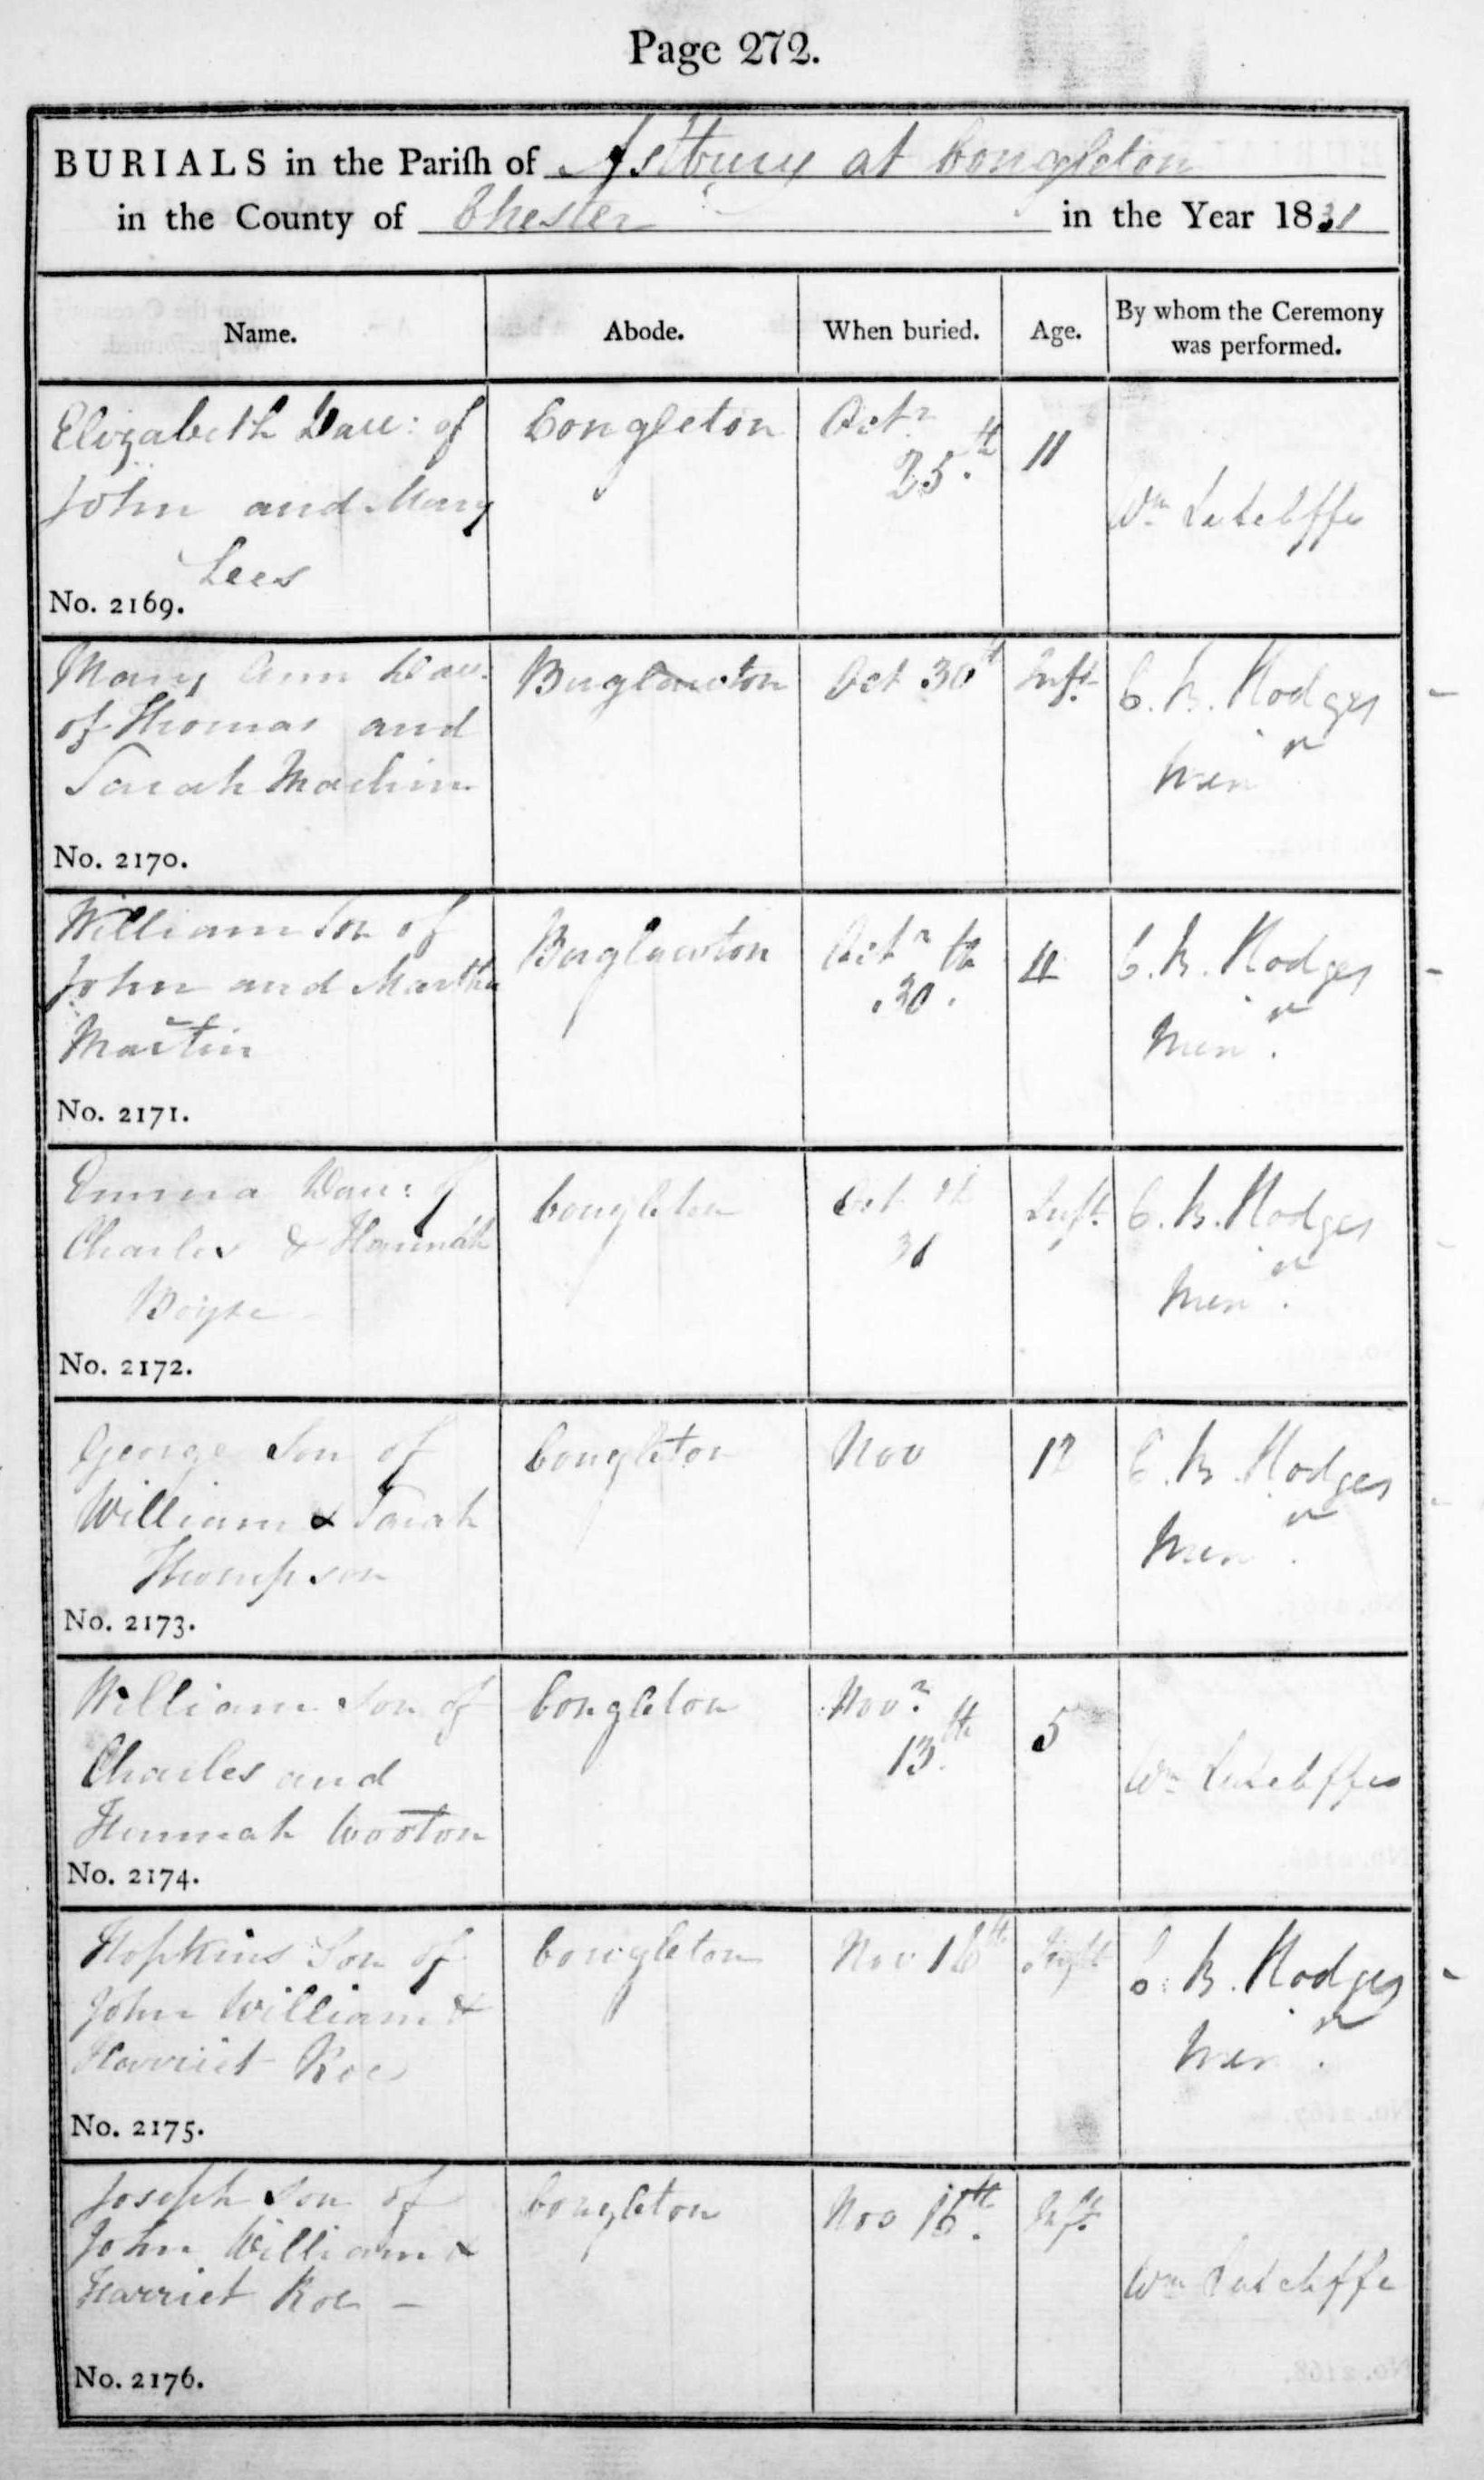 Page 272.
BURIALS in the Parish of Astbury at Congleton
in the County of Chester in the Year 1831
Name. Abode. When buried. Age. By whom the Ceremony was performed.
Elizabeth Dau: of Congleton Octr 11
John and Mary 25.th Wm Sutcliffe
Lees
No. 2169.
Mary Ann Dau: Buglawton Oct 30th Inft. C. B. Hodges
of Thomas and
Sarah Machin Minr
No. 2170.
William Son of Buglawton Octr th C. B. Hodges
John and Martha 30.
Martin Minr.
No. 2171.
Emma Dau: of Congleton Oct Inft. C. B. Hodges
Charles & Hannah
Minr.
No. 2172.
George Son of Congleton Nov 12 C. B. Hodges
William & Sarah Minr.
Thompson
No. 2173.
William Son of Congleton Novr. 5
Charles and 13th. Wm Sutcliffe
Hannah Wooton
No. 2174.
Hopkins Son of Congleton Nov 16th C. B. Hodges
John William &
Harriet Roe Minr.
No. 2175.
Joseph Son of Congleton Nov 16th. Inft.
John William & Wm Sutcliffe
Harriet Roe –
No. 2176.